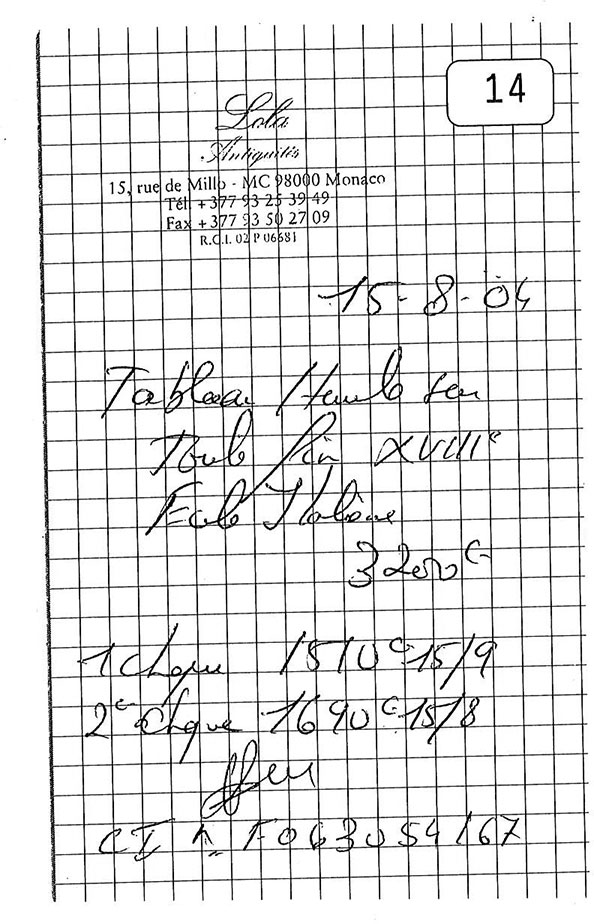 14
Lola
Antiquités
15, rue de Millo - MC 98000 Monaco
Tél. +377 93 25 39 49
Fax +377 93 50 27 09
R.C.I. 02 P 06681
15-8-04
Tableau Huile sur
Toile fin XVIIIe
Ecole Italienne
3200€
1 chque 1510€ 15/9
2e chque 1690€ 15/8
CI n F063054167